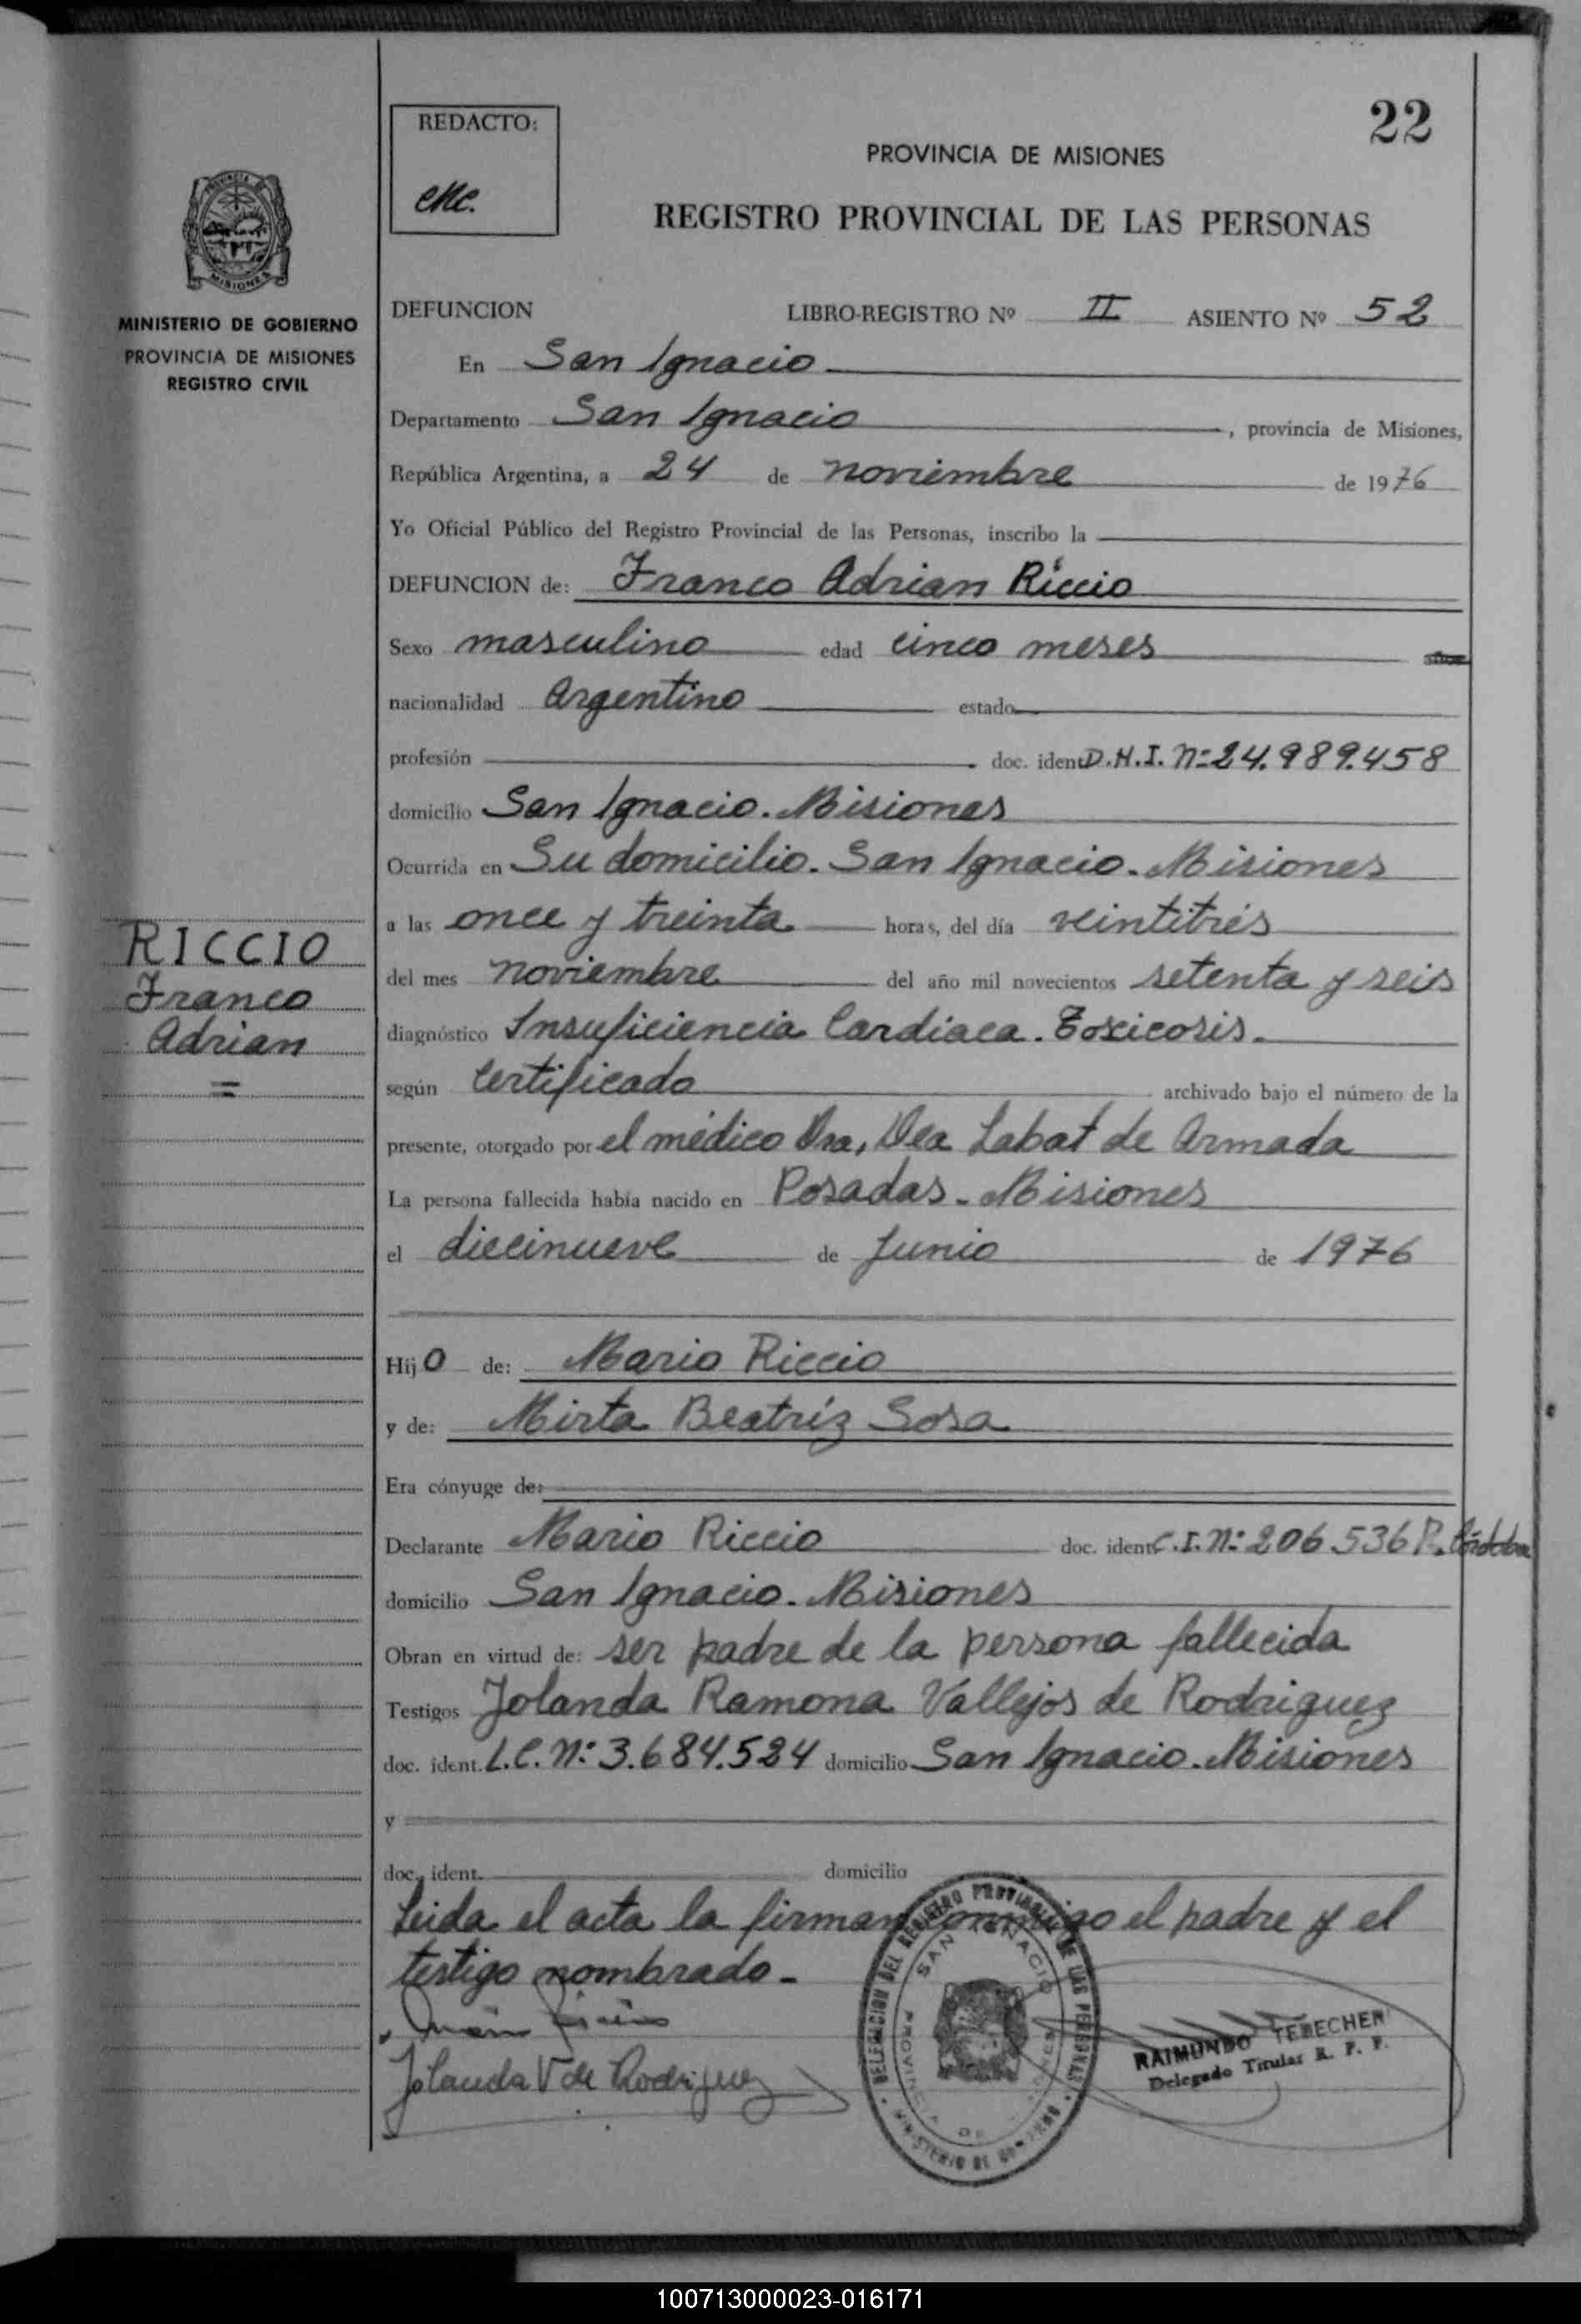 22
REDACTO:
PROVINCIA DE MISIONES
REGISTRO PROVINCIAL DE LAS PERSONAS
MINISTERIO DE GOBIERNO
PROVINCIA DE MISIONES
REGISTRO CIVIL
DEFUNCION LIBRO-REGISTRO Nº II ASIENTO Nº 52
En San Ignacio
Departamento San Ignacio, provincia de Misiones,
República Argentina, a 24 de noviembre de 1976
Yo Oficial Público del Registro Provincial de las Personas, inscribo la
DEFUNCION de: Franco Adrian Riccio
Sexo masculino edad cinco meses
nacionalidad Argentino estado
profesión doc. ident. D.N.I. Nº 24.989.458
domicilio San Ignacio. Misiones
Ocurrida en Su domicilio. San Ignacio. Misiones
a las once y treinta horas, del día veintitrés
del mes noviembre del año mil novecientos setenta y seis
diagnóstico Insuficiencia Cardiaca. Toxicosis.
según Certificado archivado bajo el número de la
presente, otorgado por el médico Dra, Dea Labat de Armada
La persona fallecida había nacido en Posadas - Misiones
el diecinueve de Junio de 1976
RICCIO
Franco
Adrian
=
Hijo de: Mario Riccio
y de: Mirta Beatríz Sosa
Era cónyuge de:
Declarante Mario Riccio doc. ident. C.I. Nº 206.536 P. Córdoba
domicilio San Ignacio. Misiones
Obran en virtud de: ser padre de la persona fallecida
Testigos Jolanda Ramona Vallejos de Rodriguez
doc. ident. L.C. Nº 3.684.524 domicilio San Ignacio. Misiones
y
doc. ident. domicilio
Leida el acta la firman conmigo el padre y el
testigo nombrado.-
Jolanda V de Rodriguez
DELEGACION DEL REGISTRO PROVINCIAL DE LAS PERSONAS
SAN IGNACIO
PROVINCIA DE MISIONES
MINISTERIO DE GOBIERNO
RAIMUNDO TEBECHERI
Delegado Titular R. P. P.
100713000023-016171